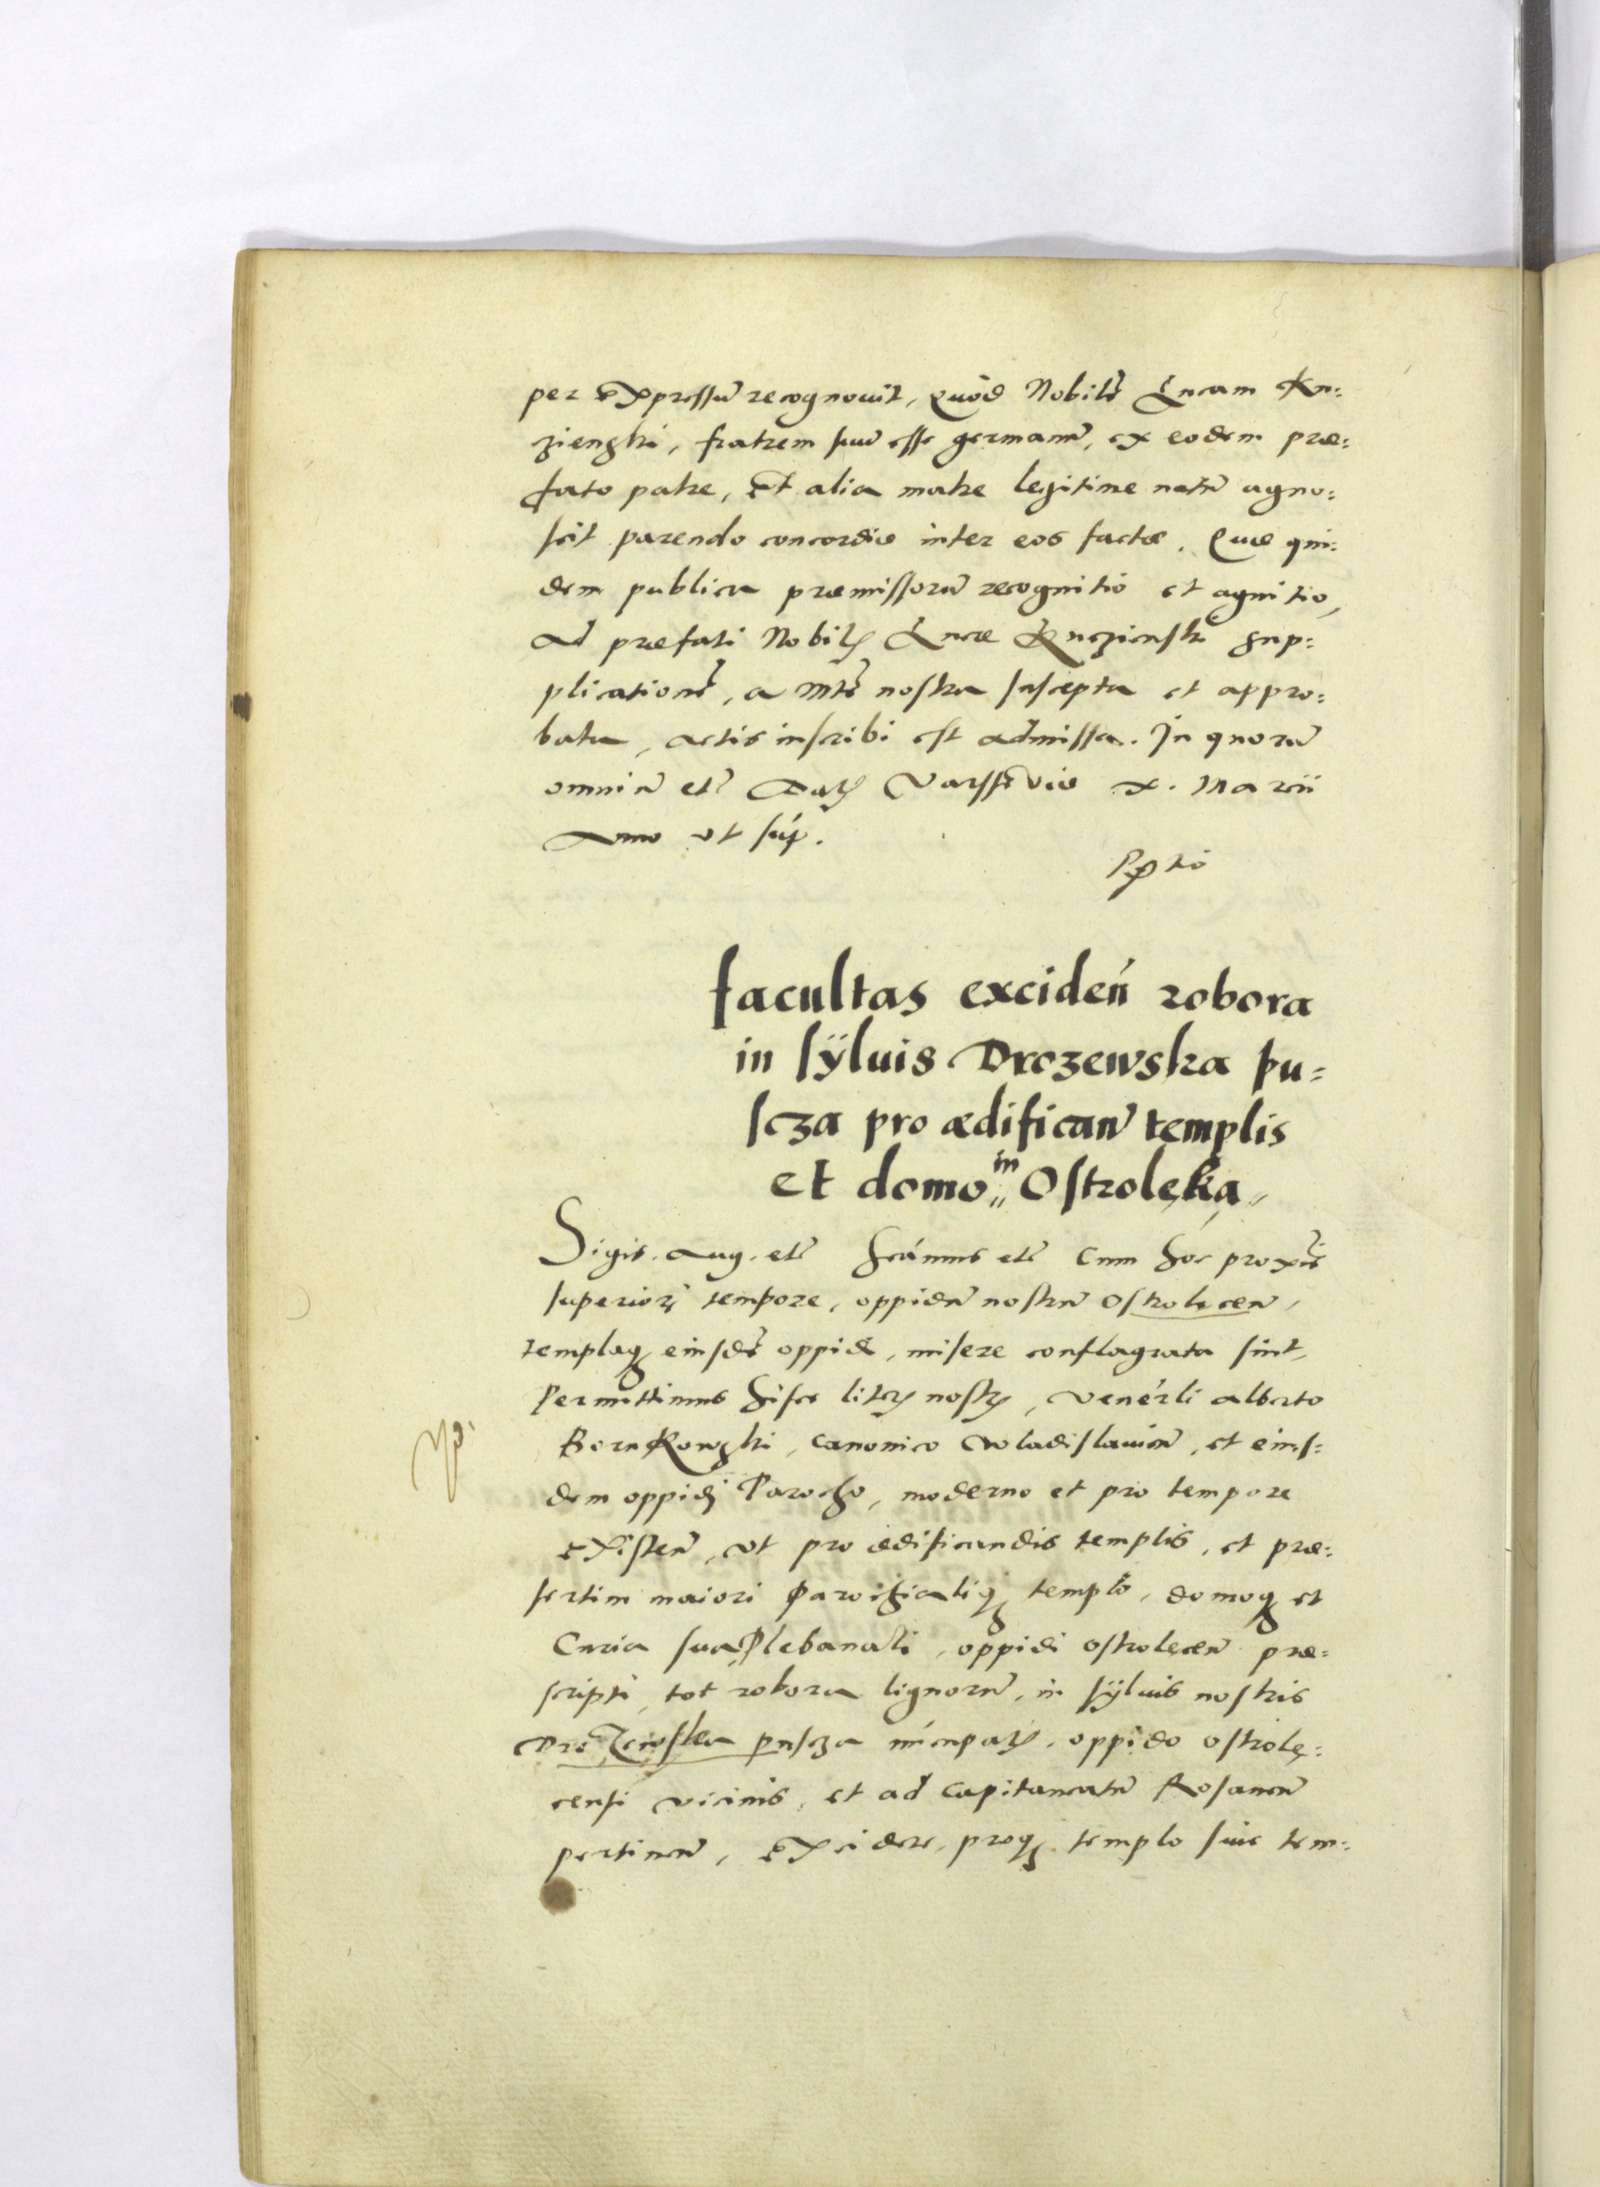 per expressum recognouit, quod Nobilem Lucam Ku=
zienski, fratrem suum esse germanum, ex eodem præ=
fato patre, Et alia matre legitime natum agno=
scit parendo concordiæ inter eos factæ. Quæ qui=
dem publica præmissorum recognitio et agnitio,
Ad præfati Nobilis Lucæ supp=
plicationem, a Mte nostra suscepta et appro=
bata, actis inscribi est admissa. In quorum
omnium etc Datum Varssoviæ x. Marcii
Anno vt sup.
facultas exciden robora
in syluis Drozewska pu=
scza pro ædifican templis
et domo in Ostrolęką
Sigis. Aug. etc etc Cum hoc proximo
superiori tempore, oppidum nostrum Ostrolęcen,
templaq eiusdem oppidi, misere conflagrata sint,
Permittimus hisce literis nostris, Venerli Alberto
canonico Wladislauien, et eius=
dem oppidi Parocho, moderno et pro tempore
Existen, vt pro ædificandis templis, et præ=
sertim maiori Parochialiq templo, domoq et
Curia sua Plebanali, oppidi Ostrolęcen præ=
scripti, tot robora lignorum, in syluis nostris
puscza nuncupatis, oppido Ostrolę=
censi vicinis, et ad Capitaneatum Rosanen
pertinen, Excidere, proq templo siue tem=